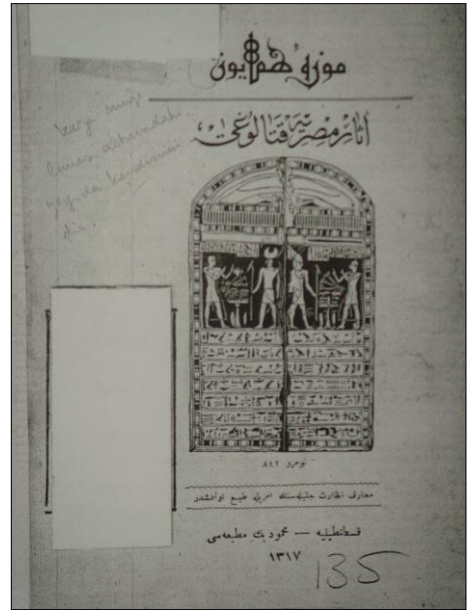 موزهٔ همايون
آثار مصريه قتالوغى
نومرو ٨٤٢
معارف نظارت جليله‌سنك امريله طبع اولنمشدر
قسطنطينيه — محمود بك مطبعه‌سى
١٣١٧
135